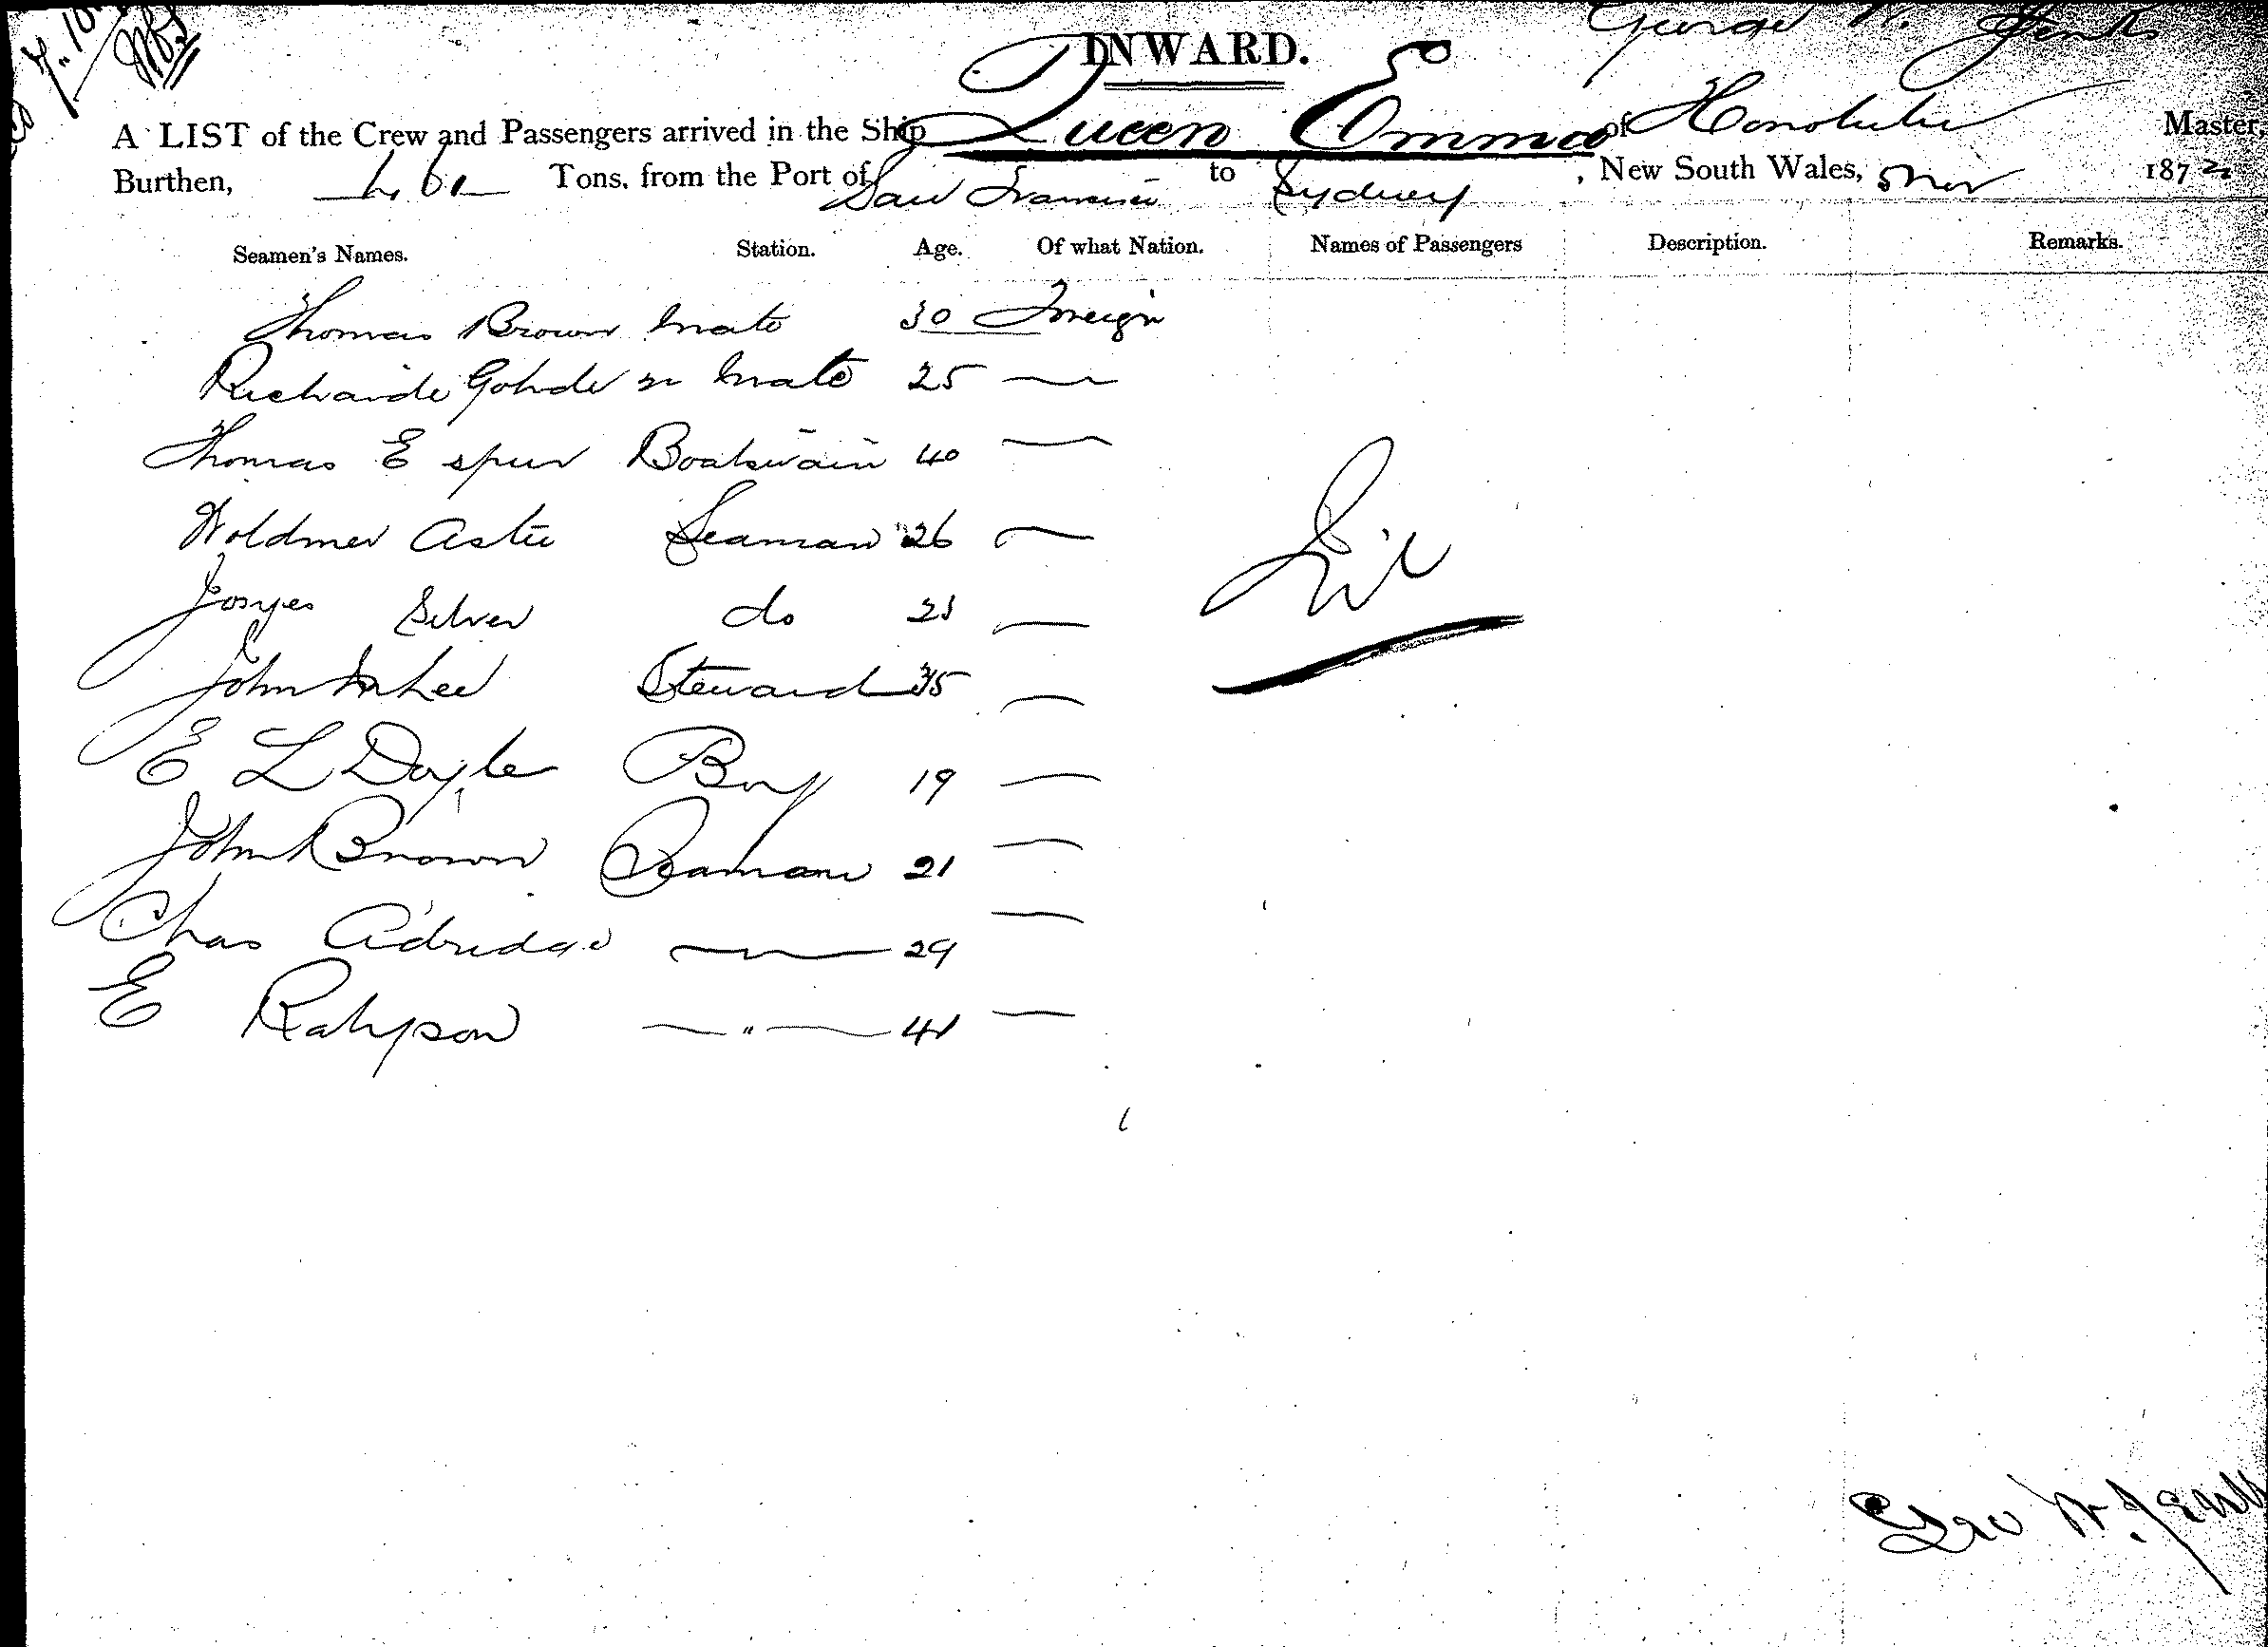 INWARD. George W. Jenks
A LIST of the Crew and Passengers arrived in the Ship Queen Emma of Honolulu Master
Burthen, Tons, from the Port of San Francisco to Sydney, New South Wales, 5 Nov 1872
Seamen's Names. Station. Age. Of what Nation. Names of Passengers Description. Remarks.
Thomas Brown Mate 30 Foreign
Richarde Gohde 2n Mate 25 —
Thomas E spur Boatswain 40 —
Woldmer Astie Seaman 26 — Nil
Silver do 23 —
John Lee Steward 35 —
E L Doyle Boy 19 —
John Brown Seaman 21 —
Chas Adridge — 29 —
E — " — 41 —
Geo W. Jenks